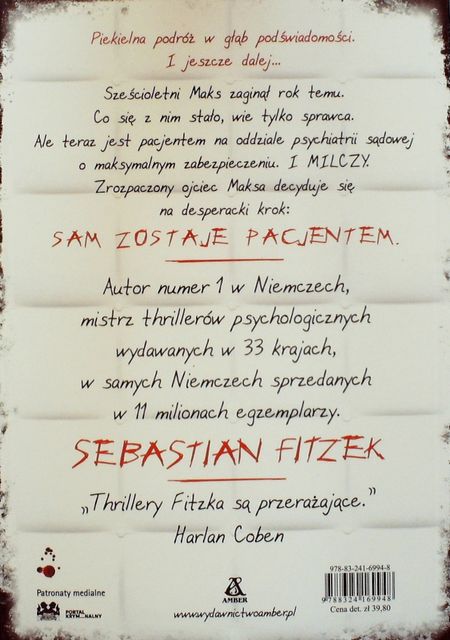 Piekielna podróż w głąb podświadomości.
I jeszcze dalej...
Sześcioletni Maks zaginął rok temu.
Co się z nim stało, wie tylko sprawca.
Ale teraz jest pacjentem na oddziale psychiatrii sądowej
o maksymalnym zabezpieczeniu. I MILCZY.
Zrozpaczony ojciec Maksa decyduje się
na desperacki krok:
SAM ZOSTAJE PACJENTEM.
Autor numer 1 w Niemczech,
mistrz thrillerów psychologicznych
wydawanych w 33 krajach,
w samych Niemczech sprzedanych
w 11 milionach egzemplarzy.
SEBASTIAN FITZEK
„Thrillery Fitzka są przerażające.”
Harlan Coben
978-83-241-6994-8
Patronaty medialne
PORTAL
AMBER
www.wydawnictwoamber.pl
9 788324 169948
Cena det. zł 39,80